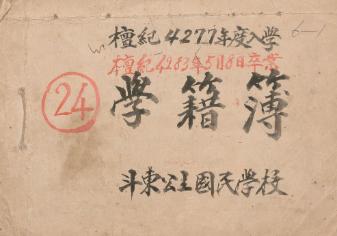 檀紀4277年度入學
檀紀4283年5月8日卒業
24
學籍簿
斗東公立國民學校
6-1